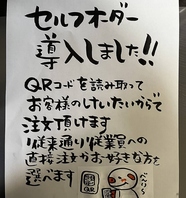 セルフオーダー
導入しました!!
QRコードを読み取って
お客様のけいたいがらで
注文頂けます
従来通り従業員への
直接注文がお好きな方を
選べます